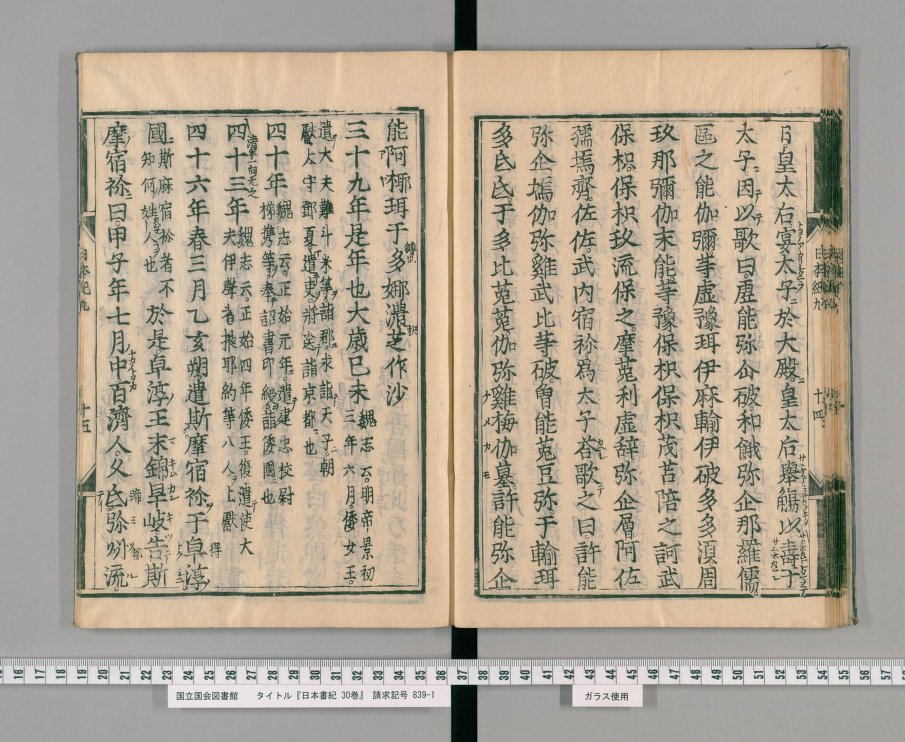 日皇太后宴太子於大殿皇太后擧觴以壽于
太子因以歌曰虛能弥企破和餓弥企那羅儒
區之能伽彌等虛豫珥伊麻輸伊破多多須周
玖那彌伽未能等豫保枳保枳茂苔陪之訶武
保枳保枳玖流保之摩菟利虛辞弥企層阿佐
孺塢齊佐佐武内宿祢為太子荅歌之曰許能
弥企塢伽弥鷄武比等破曽能菟豆弥于輸珥
多氐氐于多比菟菟伽弥鷄梅伽墓許能弥企
日本紀九
十四
能阿椰珥于多娜濃芝作沙
三十九年是年也大歳己未魏志云明帝景初三年六月倭女王
遣大夫難斗米等詣郡求詣天子朝獻太守鄧夏遣吏將送詣京都也
四十年魏志云正始元年遣建忠校尉梯携等奉詔書印綬詣倭國也
四十三年魏志云正始四年倭王復遣使大夫伊聲者掖耶約等八人上獻
四十六年春三月乙亥朔遣斯摩宿祢于卓淳
國斯麻宿祢者不知何姓人也於是卓淳王末錦旱岐告斯
摩宿祢曰甲子年七月中百濟人久氐弥州流
日本紀九
十五
国立国会図書館 タイトル『日本書紀 30巻』 請求記号 839-1
ガラス使用
16 17 18 19 20 21 22 23 24 25 26 27 28 29 30 31 32 33 34 35 36 37 38 39 40 41 42 43 44 45 46 47 48 49 50 51 52 53 54 55 56 57